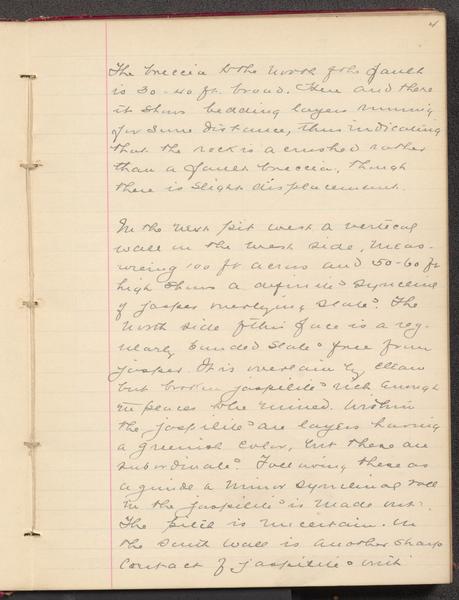 4
The breccia to the north of the fault
is 30-40 ft. broad. Here and there
it shows bedding layers running
for some distance, thus indicating
that the rock is a crushed rather
than a fault breccia, though
there is slight displacement.
In the next pit west a vertical
wall on the west side, meas-
uring 100 ft across and 50-60 ft
high shows a definite syncline
of jasper overlying slate. The
north side of this face is a reg-
ularly banded slate free from
jasper. It is overlain by clean
but broken jaspilite rich enough
in places to be mined. Within
the jaspilite are layers having
a greenish color, but these are
subordinate. Following these as
a guide a minor synclinal roll
in the jaspilite is made out.
The pitch is uncertain. On
the south wall is another sharp
contact of jaspilite with